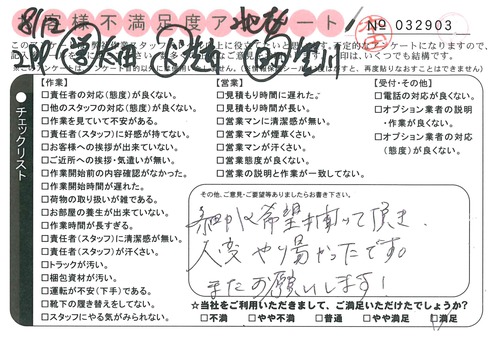 お客様不満足度アンケート
No 032903
チェックリスト
【作業】
□責任者の対応(態度)が良くない。
□他のスタッフの対応(態度)が良くない。
□作業を見ていて不安がある。
□責任者(スタッフ)に好感が持てない。
□お客様への挨拶が出来ていない。
□ご近所への挨拶・気遣いが無い。
□作業開始前の内容確認がなかった。
□作業開始時間が遅れた。
□荷物の取り扱いが雑である。
□お部屋の養生が出来ていない。
□作業時間が長すぎる。
□責任者(スタッフ)に清潔感が無い。
□責任者(スタッフ)が汗くさい。
□トラックが汚い。
□梱包資材が汚い。
□運転が不安(下手)である。
□靴下の履き替えをしてない。
□スタッフにやる気がみられない。
【営業】
□見積もり時間に遅れた。
□見積もり時間が長い。
□営業マンに清潔感が無い。
□営業マンが煙草くさい。
□営業マンが汗くさい。
□営業態度が良くない。
□営業の説明と作業が一致してない。
【受付・その他】
□電話の対応が良くない。
□オプション業者の説明
・作業が良くない。
□オプション業者の対応
(態度)が良くない。
その他、ご意見・ご要望等ありましたらお書き下さい。
細かく希望も聞いて頂き、
大変やり易かったです。
またお願いします!
☆当社をご利用いただきまして、ご満足いただけたでしょうか?
□不満 □やや不満 □普通 □やや満足 □満足